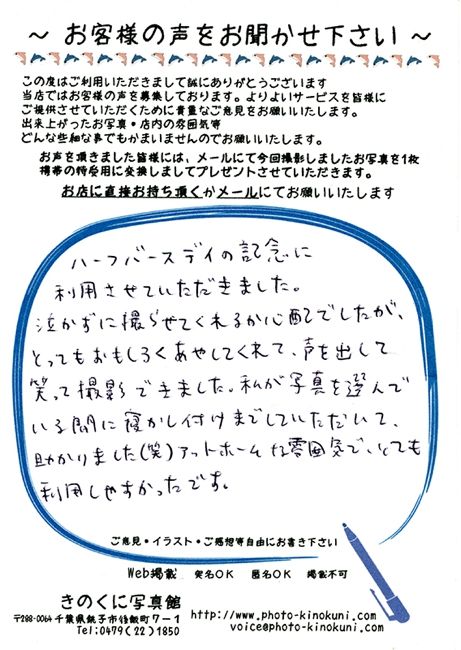 ～ お客様の声をお聞かせ下さい ～
この度はご利用いただきまして誠にありがとうございます
当店ではお客様の声を募集しております。よりよいサービスを皆様に
ご提供させていただくために貴重なご意見をお願いします。
出来上がったお写真・店内の雰囲気等
どんな些細な事でもかまいませんのでお願いいたします。
お声を頂きました皆様には、メールにて今回撮影しましたお写真を1枚
携帯の待受用に変換しましてプレゼントさせていただきます。
お店に直接お持ち頂くかメールにてお願いいたします
ハーフバースデイの記念に
利用させていただきました。
泣かずに撮らせてくれるか心配でしたが、
とってもおもしろくあやしてくれて、声を出して
笑って撮影できました。私が写真を選んで
いる間に寝かし付けまでしていただいて、
助かりました(笑)アットホームな雰囲気で、とても
利用しやすかったです。
ご意見・イラスト・ご感想等自由にお書き下さい
Web掲載 実名OK 匿名OK 掲載不可
きのくに写真館
〒288-0064 千葉県銚子市後飯町7-1
Tel:0479(22)1850
http://www.photo-kinokuni.com/
voice@photo-kinokuni.com